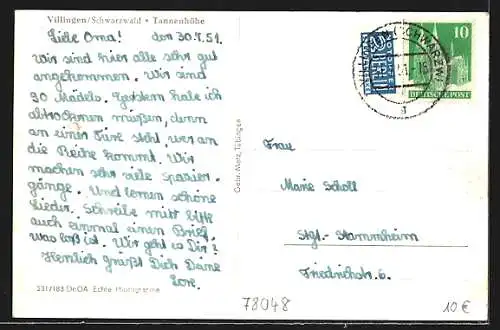 Villingen/Schwarzwald • Tannenhöhe
Liebe Oma! den 30.7.51.
Wir sind hier alle sehr gut
angekommen. Wir sind
30 Mädels. Gestern habe ich
abtrocknen müßen, denn
an einer Türe steht, wer an
die Reihe kommt. Wir
machen sehr viele Spazier-
gänge. Und lernen schöne
Lieder. Schreibe mir bitte
auch einmal einen Brief,
was los ist. Wir geht es Dir?
Herzlich grüßt Dich Deine
Lore.
331/183 DeOA Echte Photographie
Gebr. Metz, Tübingen
(SCHWARZW
NOTOPFER
2
BERLIN
10
DEUTSCHE POST
Frau
Marie Scholl
Stgt.-Stammheim
Friedrichstr. 6.
78048
10€